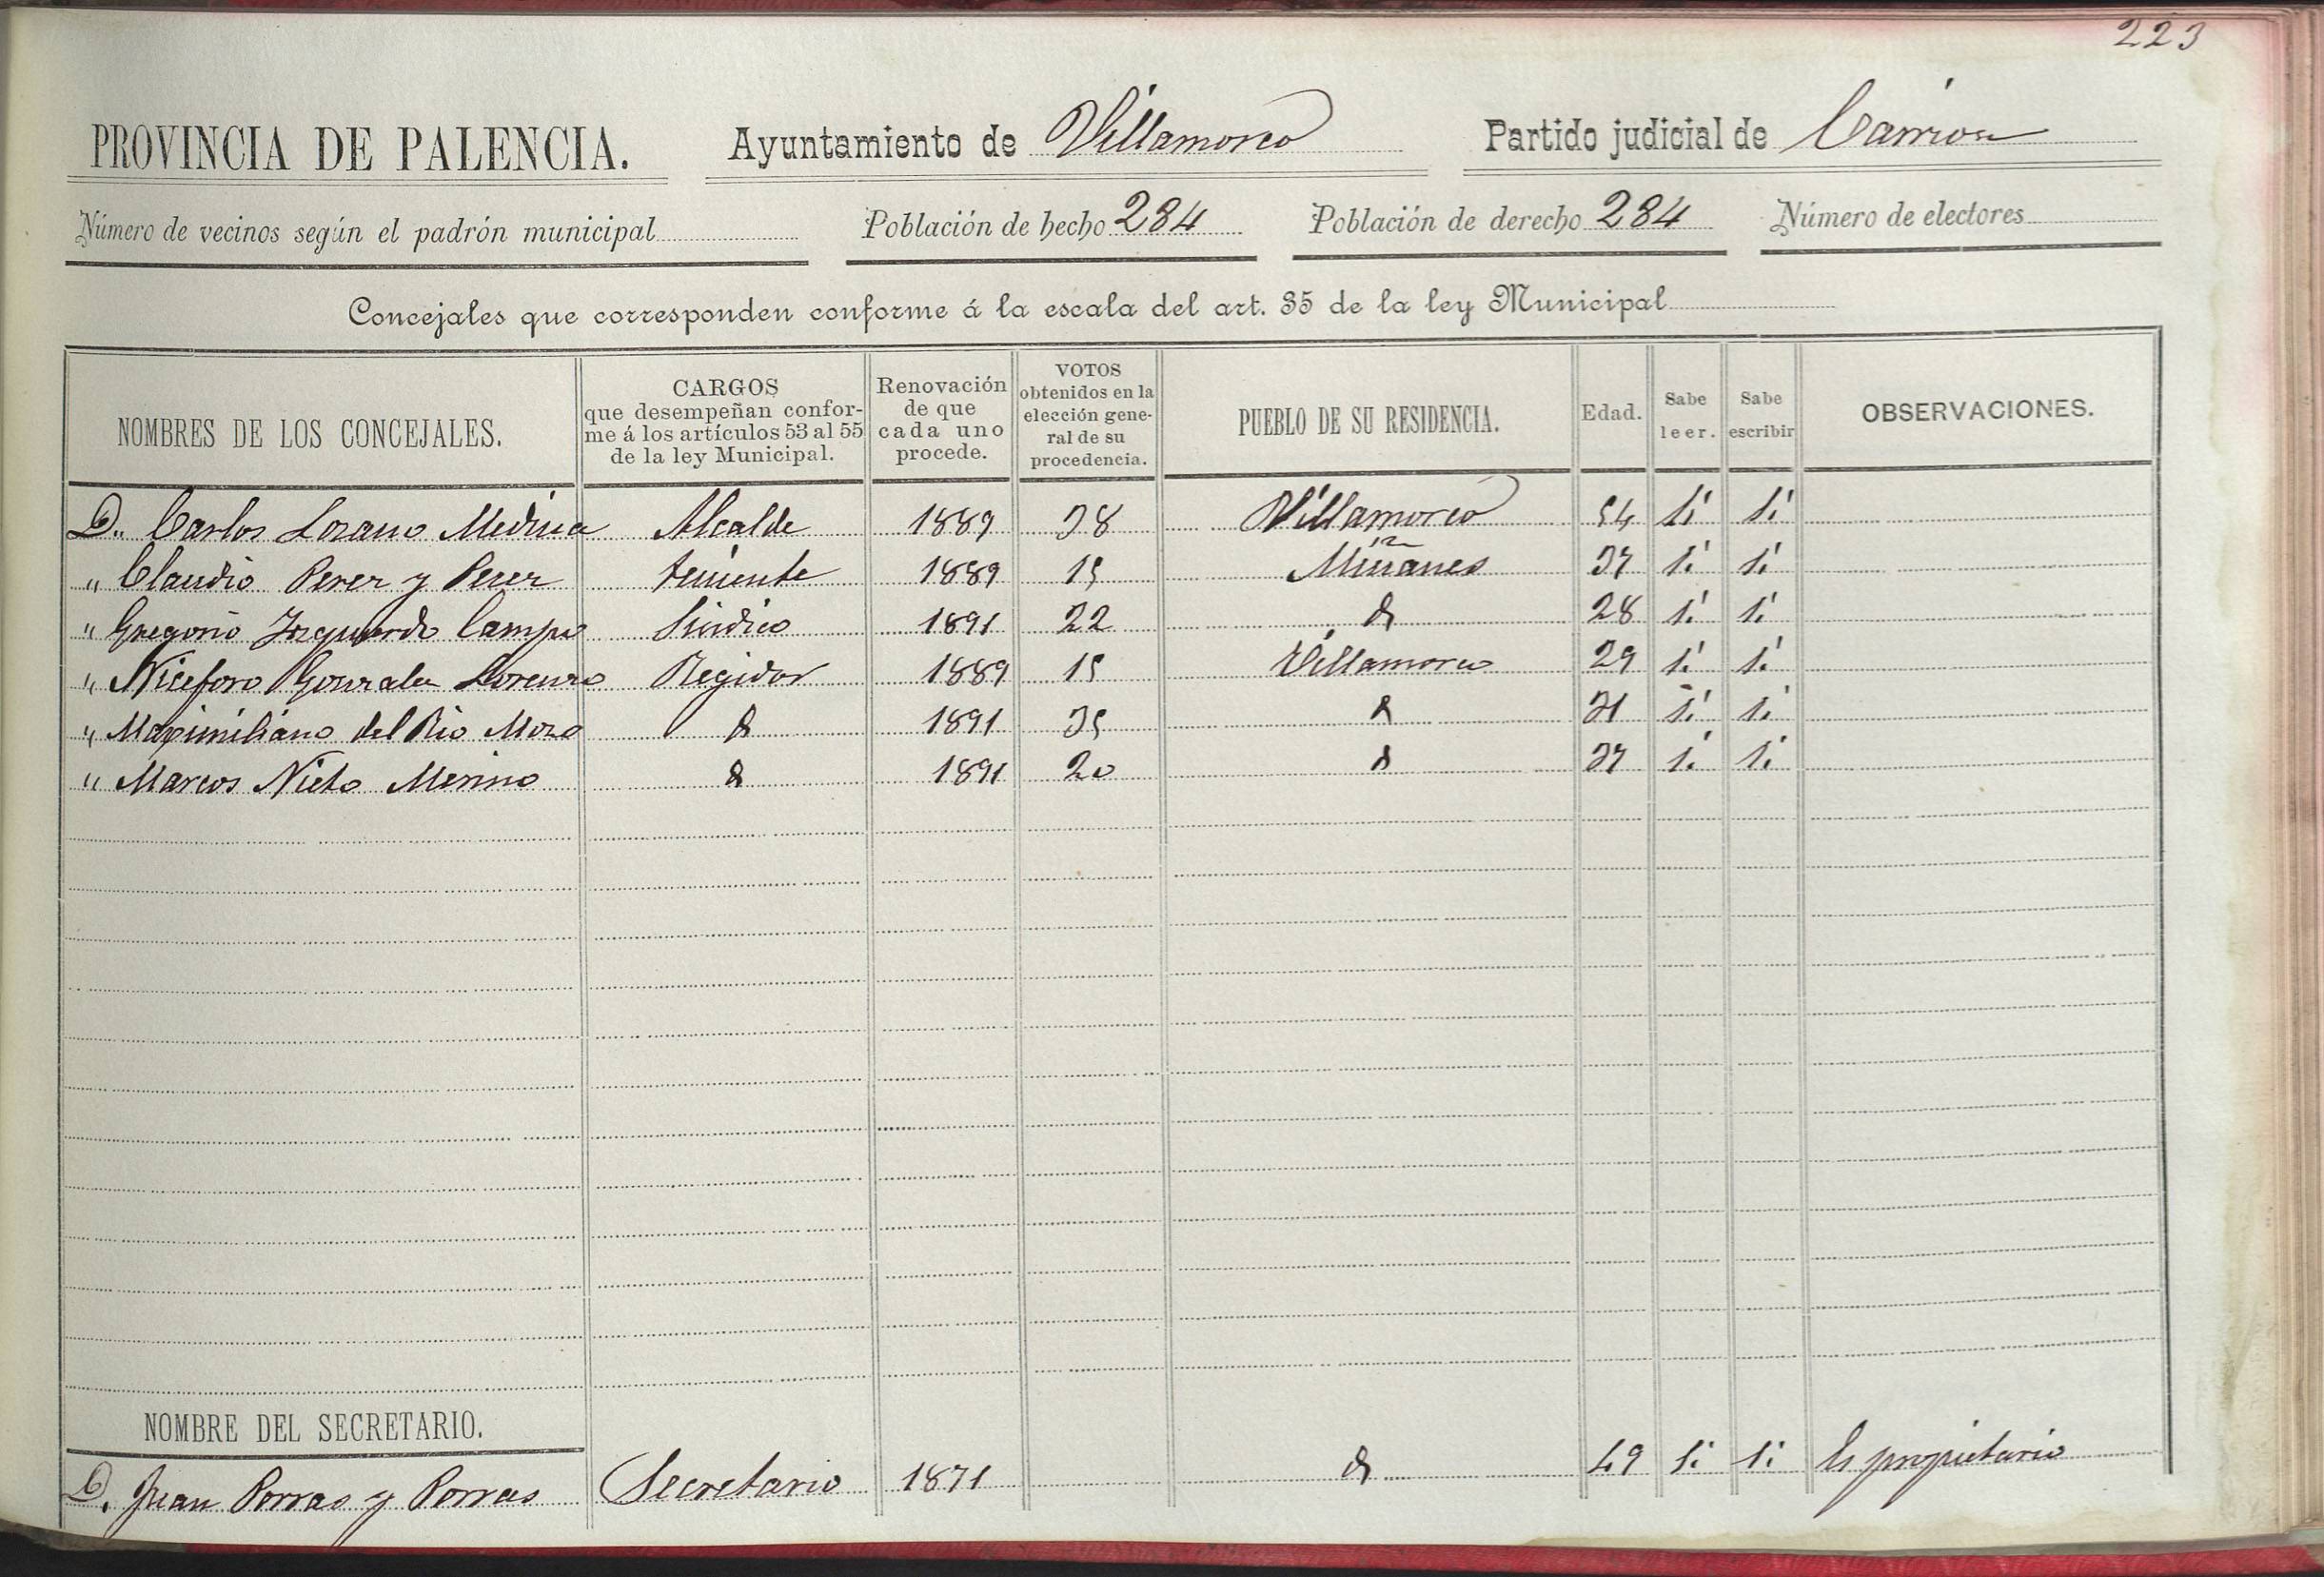 223
PROVINCIA DE PALENCIA. Ayuntamiento de Villamorco Partido judicial de Carrion
Número de vecinos según el padrón municipal Población de hecho 284 Población de derecho 284 Número de electores
Concejales que corresponden conforme á la escala del art. 35 de la ley Municipal
NOMBRES DE LOS CONCEJALES. CARGOS que desempeñan conforme á los artículos 53 al 55 de la ley Municipal. Renovación de que cada uno procede. VOTOS obtenidos en la elección general de su procedencia. PUEBLO DE SU RESIDENCIA. Edad. Sabe leer. Sabe escribir OBSERVACIONES.
D. Carlos Lozano Medina Alcalde 1889 38 Villamorco 54 Si Si
" Claudio Perez y Perez teniente 1889 15 Miñanes 37 Si Si
" Gregorio Izquierdo Campo Sindico 1891 22 & 28 Si Si
" Niceforo Gonzalez Lorenzo Regidor 1889 15 Villamorco 29 Si Si
" Maximiliano del Rio Mozo & 1891 35 & 31 Si Si
" Marcos Nieto Merino & 1891 20 & 37 Si Si
NOMBRE DEL SECRETARIO.
D. Juan Porras y Porras Secretario 1871 & 49 Si Si Es propietario